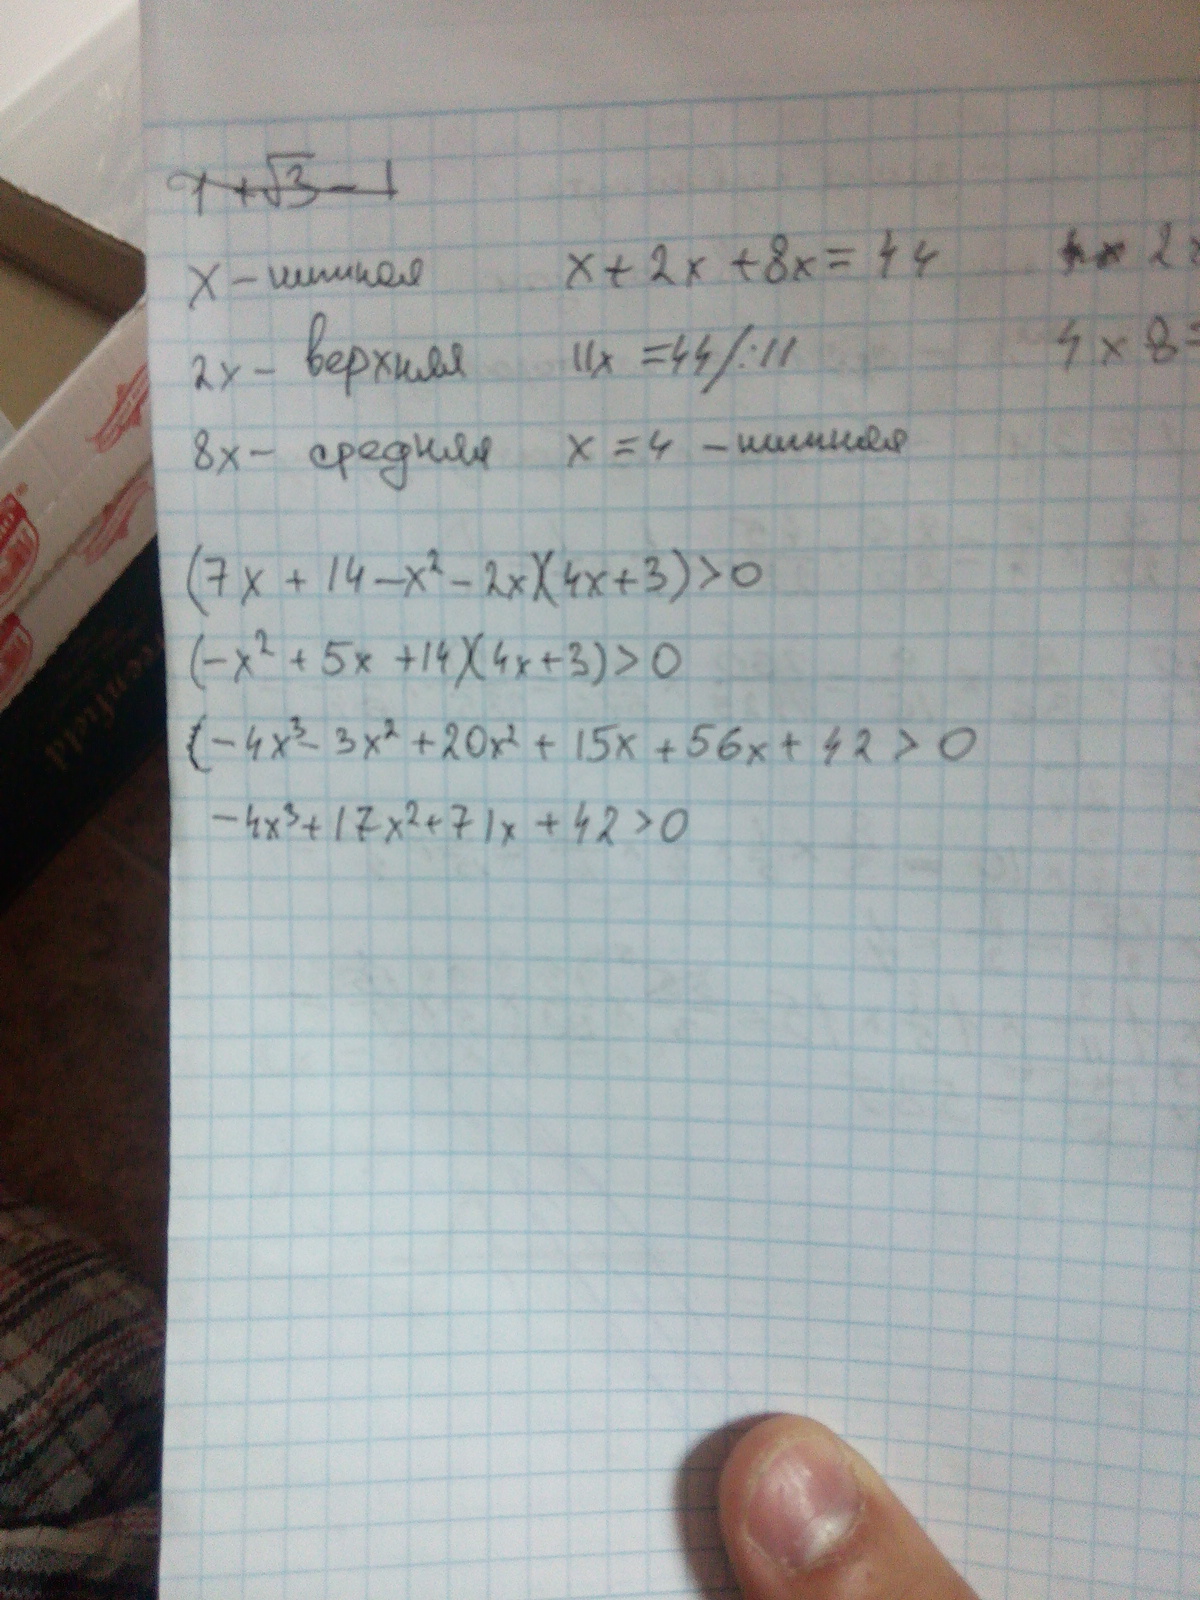 x + √3 - 1
x - нижняя x + 2x + 8x = 44 4x 2x
2x - верхняя 11x = 44 /:11 4 x 8 =
8x - средняя x = 4 - нижняя
(7x + 14 - x² - 2x)(4x + 3) > 0
(-x² + 5x + 14)(4x + 3) > 0
(-4x³ - 3x² + 20x² + 15x + 56x + 42 > 0
-4x³ + 17x² + 71x + 42 > 0